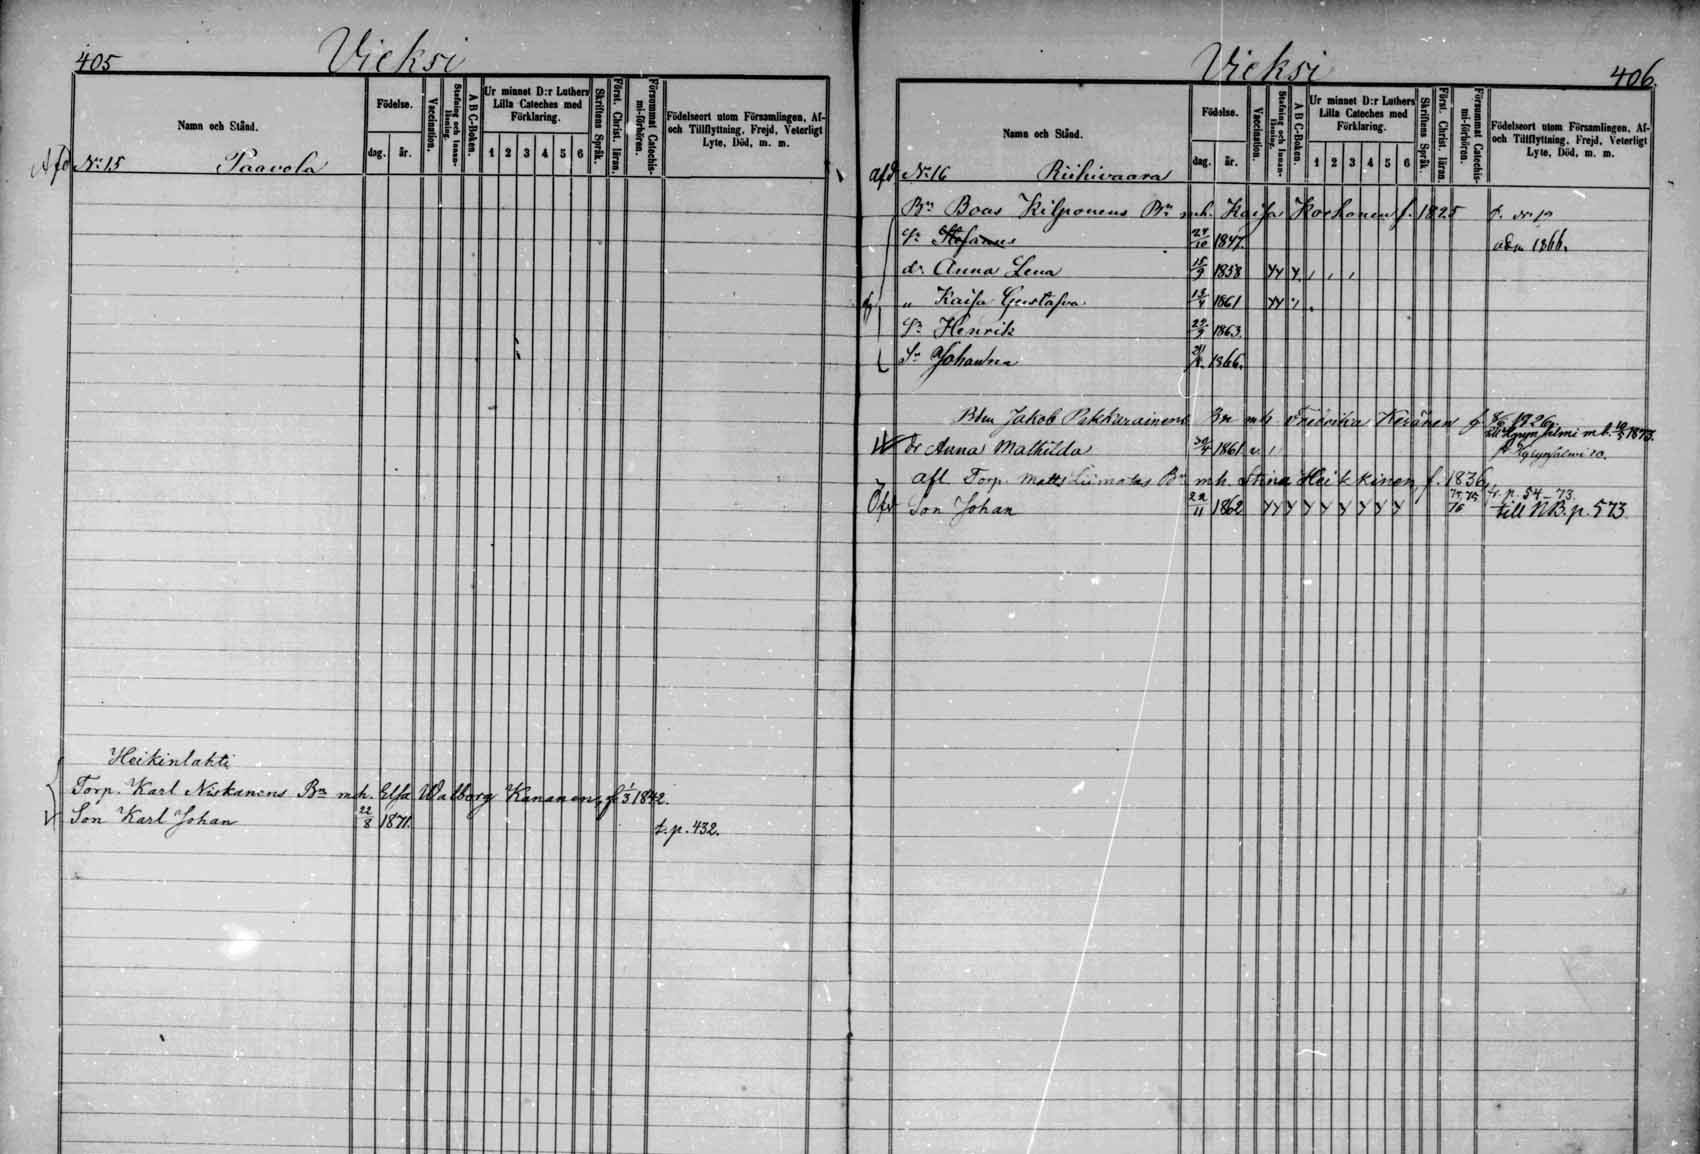 405
Vieksi
Namn och Stånd.
Födelse.
dag.
år.
Vaccination.
Stafning och Innan-läsning.
A B C-Boken.
Ur minnet D:r Luthers Lilla Cateches med Förklaring.
1 2 3 4 5 6
Skriftens Språk.
Först. Christ. läran.
Försummat Catechis-mi-förhören.
Födelseort utom Församlingen, Af- och Tillflyttning, Frejd, Veterligt Lyte, Död, m. m.
Afd No 15 Paavola
Heikinlahti
Torp. Karl Niskanens Bn mh. Elsa Walborg Kananen, f. 1/3 1842.
Son Karl Johan 22/8 1871. t. p. 432.
Vieksi
406.
Namn och Stånd.
Födelse.
dag.
år.
Vaccination.
Stafning och Innan-läsning.
A B C-Boken.
Ur minnet D:r Luthers Lilla Cateches med Förklaring.
1 2 3 4 5 6
Skriftens Språk.
Först. Christ. läran.
Försummat Catechis-mi-förhören.
Födelseort utom Församlingen, Af- och Tillflyttning, Frejd, Veterligt Lyte, Död, m. m.
afd No 16 Riihivaara
Bn Boas Kilponens Bn mh. Kaisa Korhonen f. 1825
Sn Stefanus 1847. adm 1866.
dr Anna Lena 15/9 1858
" Kaisa Gustafva 13/4 1861
Sn Henrik 1863.
Sn Johannes 1866.
Bn Jakob Pikkarainens Bn mh Fredrika Keränen f 1826.
till Hyrynsalmi m.b. 1873.
dr Anna Mathilda 1861
afl Torp. Matts Liimatas Bn mh. Stina Heikkinen f. 1836,
fr. p. 54-73.
Öfv Son Johan 22/11 1862 till NB. p. 573